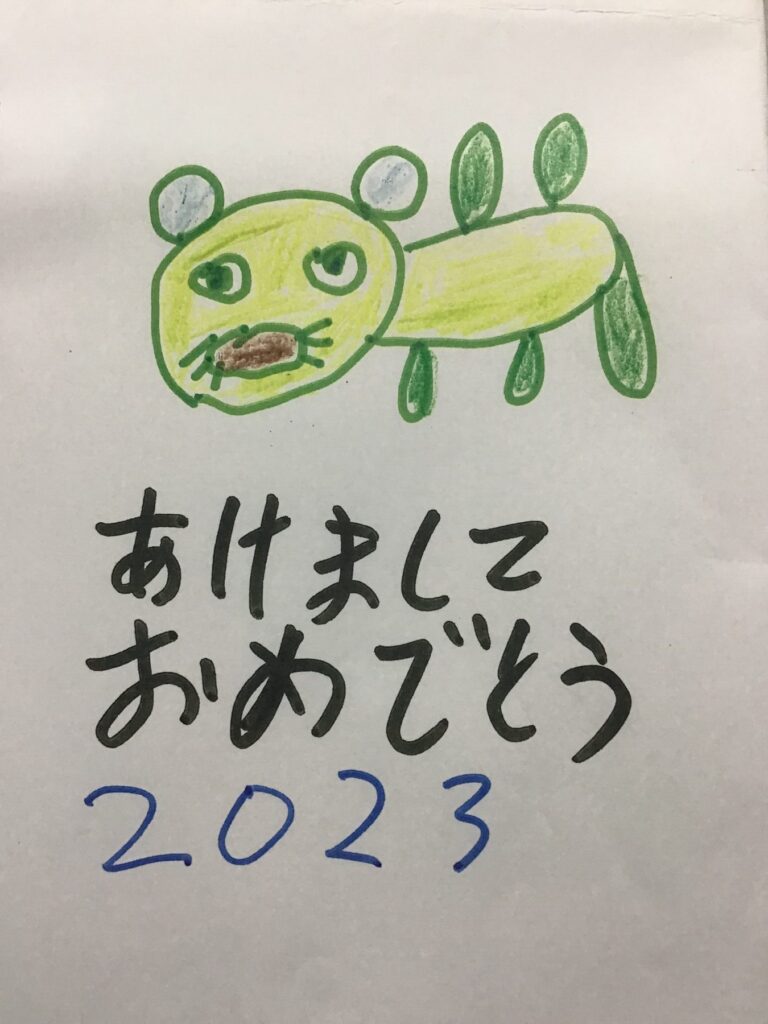 あけまして
おめでとう
2023